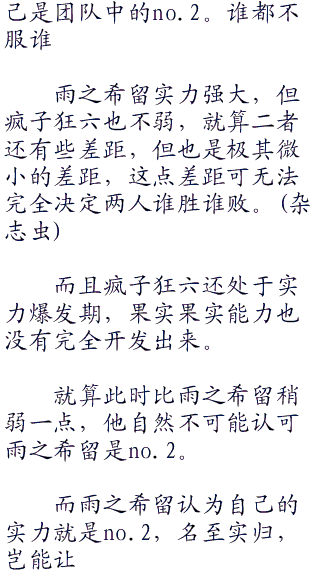 己是团队中的no.2。谁都不
服谁
雨之希留实力强大，但
疯子狂六也不弱，就算二者
还有些差距，但也是极其微
小的差距，这点差距可无法
完全决定两人谁胜谁败。(杂
志虫)
而且疯子狂六还处于实
力爆发期，果实果实能力也
没有完全开发出来。
就算此时比雨之希留稍
弱一点，他自然不可能认可
雨之希留是no.2。
而雨之希留认为自己的
实力就是no.2，名至实归，
岂能让